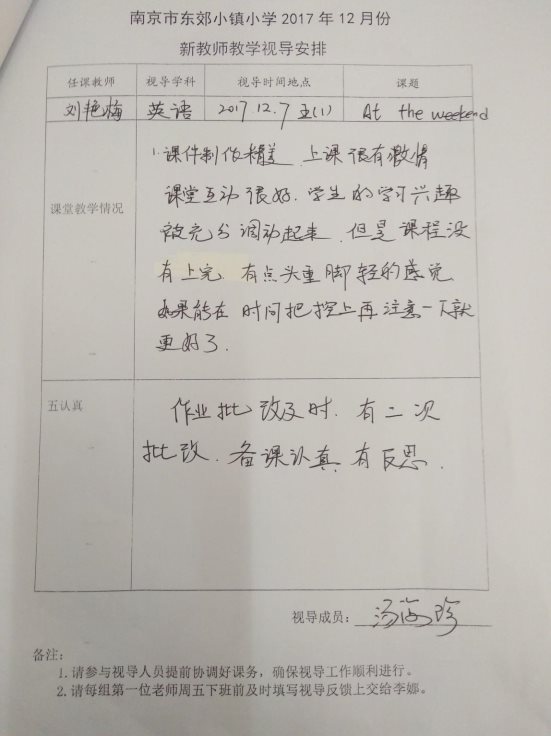 南京市东郊小镇小学2017年12月份
新教师教学视导安排
任课教师 视导学科 视导时间地点 课题
刘艳梅 英语 2017.12.7 五(1) At the weekend
课堂教学情况
1.课件制作精美 上课很有激情
课堂互动很好.学生的学习兴趣
被充分调动起来.但是课程没
有上完 有点头重脚轻的感觉
如果能在时间把控上再注意一下就
更好了.
五认真
作业批改及时.有二次
批改.备课认真 有反思.
视导成员:汤海珍
备注:
1.请参与视导人员提前协调好课务,确保视导工作顺利进行。
2.请每组第一位老师周五下班前及时填写视导反馈上交给李娜。